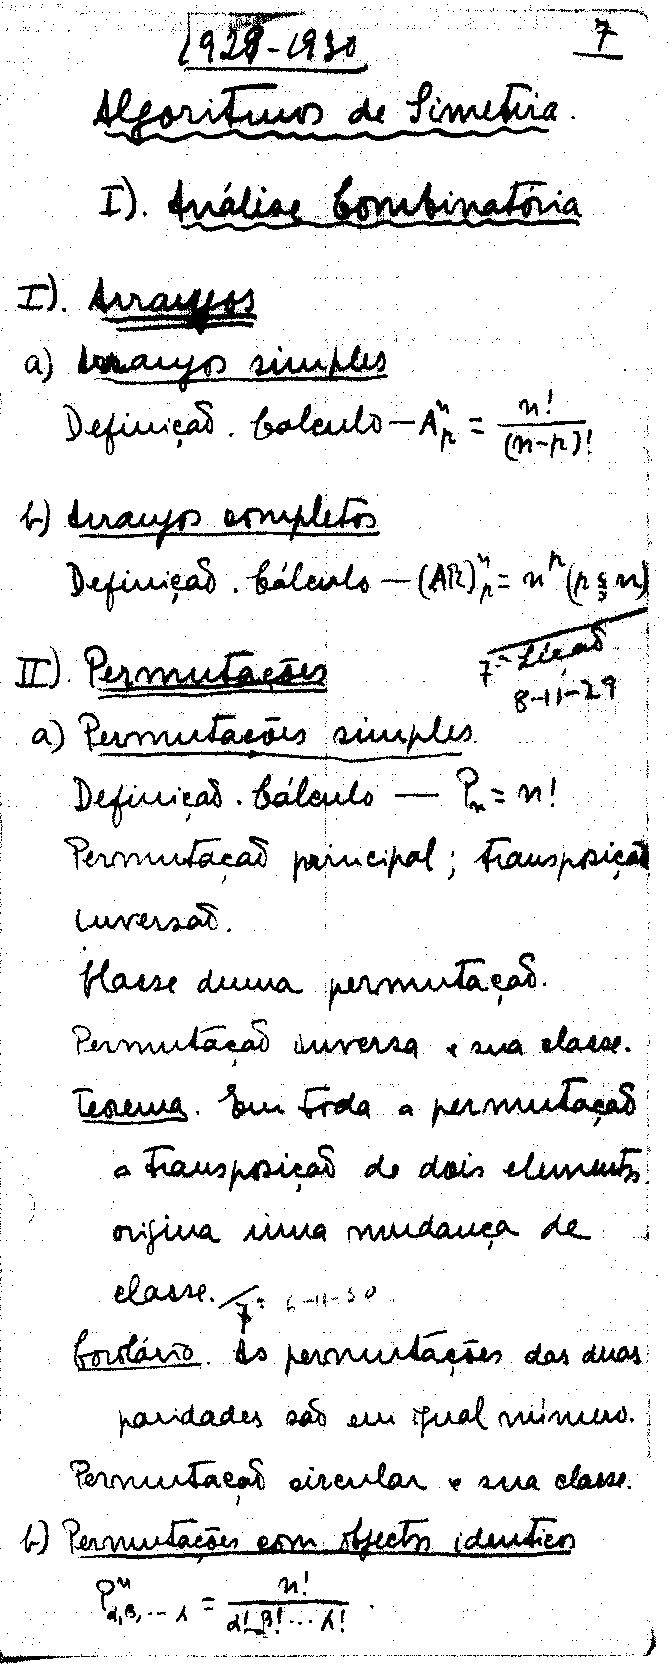 1929-1930
7
Algoritmos de Simetria.
I). Análise Combinatória
I). Arranjos
a) Arranjos simples
Definição. Cálculo — A^n_p = n!/(n-p)!
b) Arranjos completos
Definição. Cálculo — (AR)^n_p = n^p (p ≶ n)
7ª Lição
8-11-29
II) Permutações
a) Permutações simples
Definição. Cálculo — P_n = n!
Permutação principal; transposição
inversão.
Classe duma permutação.
Permutação inversa e sua classe.
Teorema. Em toda a permutação
a transposição de dois elementos
origina uma mudança de
classe. 7ª 6-11-30
Corolário. As permutações das duas
paridades são em igual número.
Permutação circular e sua classe.
b) Permutações com objectos identicos
P^n_α,β,...λ = n!/α!β!...λ!.